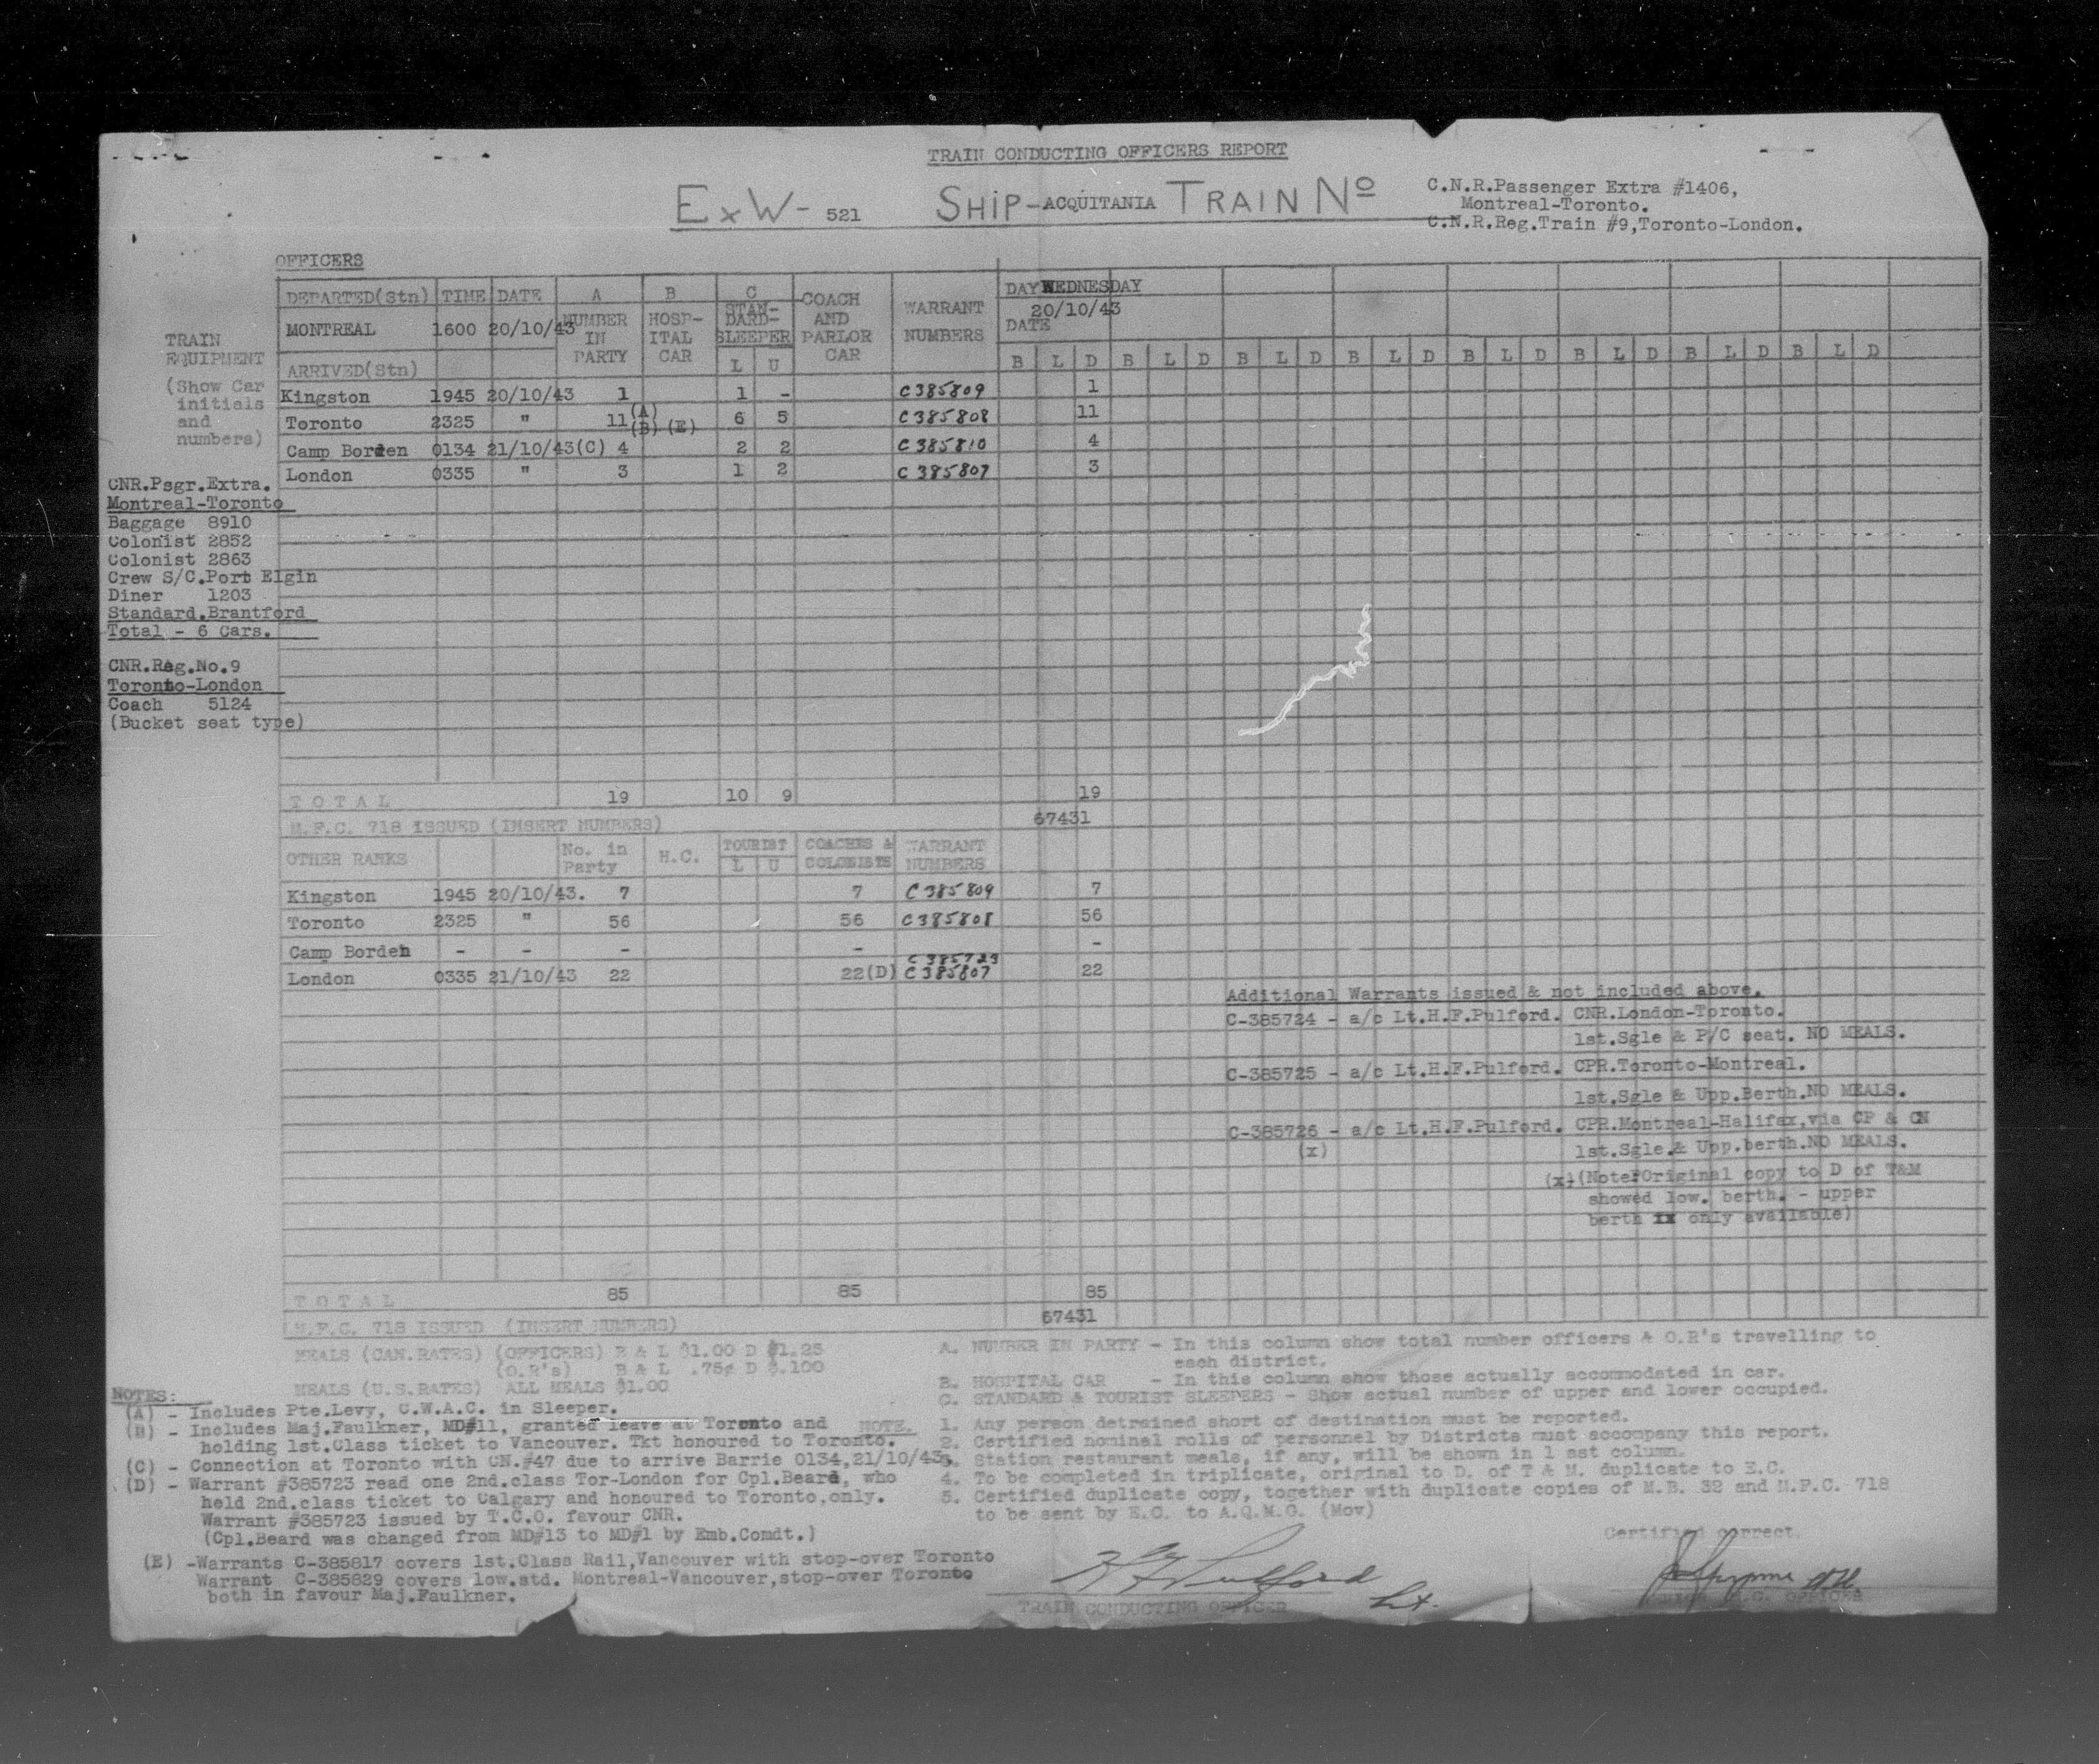 TRAIN CONDUCTING OFFICERS REPORT
ExW- 521 SHIP-ACQUITANIA TRAIN No
C.N.R.Passenger Extra #1406,
Montreal-Toronto.
C.N.R.Reg.Train #9,Toronto-London.
OFFICERS
TRAIN
EQUIPMENT
(Show Car
initials
and
numbers)
CNR.Psgr.Extra.
Montreal-Toronto
Baggage 8910
Colonist 2852
Colonist 2863
Crew S/C.Port Elgin
Diner 1203
Standard.Brantford
Total - 6 Cars.
CNR.Reg.No.9
Toronto-London
Coach 5124
(Bucket seat type)
DEPARTED(Stn) TIME DATE A B C COACH WARRANT DAY WEDNESDAY
MONTREAL 1600 20/10/43 NUMBER HOSP- STAN- AND NUMBERS 20/10/43
IN ITAL DARD- PARLOR DATE
PARTY CAR SLEEPER CAR
ARRIVED(Stn) L U B L D B L D B L D B L D B L D B L D B L D B L D
Kingston 1945 20/10/43 1 1 - C385809 1
Toronto 2325 " 11 (A) (B) (E) 6 5 C385808 11
Camp Borden 0134 21/10/43(C) 4 2 2 C385810 4
London 0335 " 3 1 2 C385807 3
T O T A L 19 10 9 19
M.F.C. 718 ISSUED (INSERT NUMBERS) 67431
OTHER RANKS No. in Party H.C. TOURIST L U COACHES & COLONISTS WARRANT NUMBERS
Kingston 1945 20/10/43. 7 7 C385809 7
Toronto 2325 " 56 56 C385808 56
Camp Borden - - - - -
C385723
London 0335 21/10/43 22 22(D) C385807 22
Additional Warrants issued & not included above.
C-385724 - a/c Lt.H.F.Pulford. CNR.London-Toronto.
1st.Sgle & P/C seat. NO MEALS.
C-385725 - a/c Lt.H.F.Pulford. CPR.Toronto-Montreal.
1st.Sgle & Upp.Berth.NO MEALS.
C-385726 - a/c Lt.H.F.Pulford. CPR.Montreal-Halifax,via CP & CN
(x) 1st.Sgle.& Upp.berth.NO MEALS.
(x)(Note:Original copy to D of T&M
showed low. berth. - upper
berth only available)
T O T A L 85 85 85
M.F.C. 718 ISSUED (INSERT NUMBERS) 67431
MEALS (CAN.RATES) (OFFICERS) B & L $1.00 D $1.25
(O.R's) B & L .75¢ D $.100
MEALS (U.S.RATES) ALL MEALS $1.00
NOTES:
(A) - Includes Pte.Levy, C.W.A.C. in Sleeper.
(B) - Includes Maj.Faulkner, MD#11, granted leave at Toronto and
holding 1st.Class ticket to Vancouver. Tkt honoured to Toronto.
(C) - Connection at Toronto with CN.#47 due to arrive Barrie 0134,21/10/43.
(D) - Warrant #385723 read one 2nd.class Tor-London for Cpl.Beard, who
held 2nd.class ticket to Calgary and honoured to Toronto,only.
Warrant #385723 issued by T.C.O. favour CNR.
(Cpl.Beard was changed from MD#13 to MD#1 by Emb.Comdt.)
(E) -Warrants C-385817 covers 1st.Class Rail,Vancouver with stop-over Toronto
Warrant C-385829 covers low.std. Montreal-Vancouver,stop-over Toronto
both in favour Maj.Faulkner.
A. NUMBER IN PARTY - In this column show total number officers & O.R's travelling to
each district.
B. HOSPITAL CAR - In this column show those actually accommodated in car.
C. STANDARD & TOURIST SLEEPERS - Show actual number of upper and lower occupied.
NOTE. 1. Any person detrained short of destination must be reported.
2. Certified nominal rolls of personnel by Districts must accompany this report.
3. Station restaurant meals, if any, will be shown in l ast column.
4. To be completed in triplicate, original to D. of T & M. duplicate to E.C.
5. Certified duplicate copy, together with duplicate copies of M.B. 32 and M.F.C. 718
to be sent by E.C. to A.Q.M.G. (Mov)
Certified correct.
HF Pulford Lt.
TRAIN CONDUCTING OFFICER
OFFICER